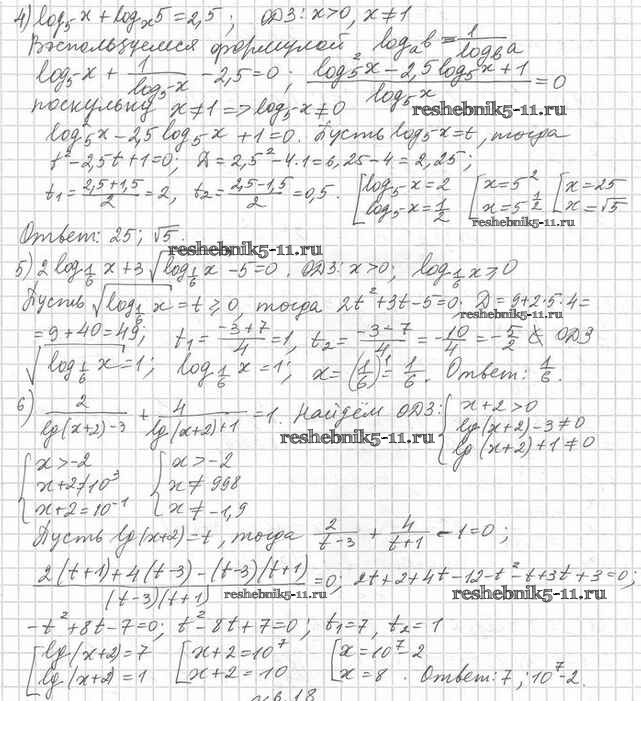 4) log₅x + logₓ5 = 2,5 ; ОДЗ: x>0, x≠1
Воспользуемся формулой logₐb = 1/log_b a
log₅x + 1/log₅x − 2,5 = 0 ; (log₅²x − 2,5 log₅x + 1)/log₅x = 0
поскульку x≠1 => log₅x ≠ 0
reshebnik5-11.ru
log₅²x − 2,5 log₅x + 1 = 0. Пусть log₅x = t, тогда
t² − 2,5t + 1 = 0; D = 2,5² − 4·1 = 6,25 − 4 = 2,25;
t₁ = (2,5+1,5)/2 = 2, t₂ = (2,5−1,5)/2 = 0,5. [log₅x = 2 [x = 5² [x = 25
log₅x = 1/2 x = 5^(1/2) x = √5
reshebnik5-11.ru
Ответ: 25; √5.
reshebnik5-11.ru
5) 2 log_(1/6) x + 3√(log_(1/6) x) − 5 = 0. ОДЗ: x>0; log_(1/6) x ≥ 0
Пусть √(log_(1/6) x) = t ≥ 0, тогда 2t² + 3t − 5 = 0. D = 9 + 2·5·4 =
reshebnik5-11.ru
= 9 + 40 = 49; t₁ = (−3+7)/4 = 1, t₂ = (−3−7)/4 = −10/4 = −5/2 ∉ ОДЗ
√(log_(1/6) x) = 1; log_(1/6) x = 1; x = (1/6)¹ = 1/6. Ответ: 1/6.
6) 2/(lg(x+2)−3) + 4/(lg(x+2)+1) = 1. Найдём ОДЗ: {x+2>0
lg(x+2)−3≠0
lg(x+2)+1≠0
reshebnik5-11.ru
{x>−2 {x>−2
x+2≠10³ x≠998
x+2=10⁻¹ x≠−1,9
Пусть lg(x+2) = t, тогда 2/(t−3) + 4/(t+1) − 1 = 0;
(2(t+1)+4(t−3)−(t−3)(t+1))/((t−3)(t+1)) = 0; 2t+2+4t−12−t²−t+3t+3=0;
reshebnik5-11.ru reshebnik5-11.ru
−t²+8t−7=0; t²−8t+7=0; t₁=7, t₂=1
[lg(x+2)=7 [x+2=10⁷ [x=10⁷−2
lg(x+2)=1 x+2=10 x=8. Ответ: 7; 10⁷−2.